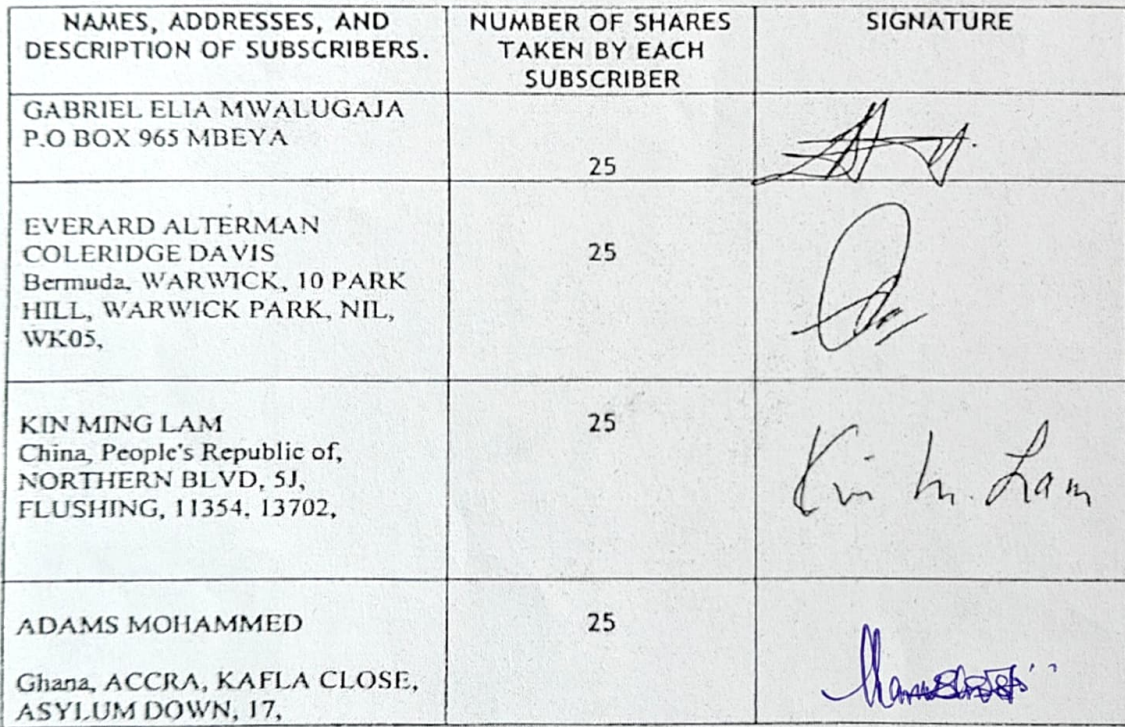 NAMES, ADDRESSES, AND
DESCRIPTION OF SUBSCRIBERS.
NUMBER OF SHARES
TAKEN BY EACH
SUBSCRIBER
SIGNATURE
GABRIEL ELIA MWALUGAJA
P.O BOX 965 MBEYA
25
EVERARD ALTERMAN
COLERIDGE DAVIS
Bermuda, WARWICK, 10 PARK
HILL, WARWICK PARK, NIL,
WK05,
25
KIN MING LAM
China, People's Republic of,
NORTHERN BLVD, 5J,
FLUSHING, 11354, 13702,
25
Kin M. Lam
ADAMS MOHAMMED
Ghana, ACCRA, KAFLA CLOSE,
ASYLUM DOWN, 17,
25